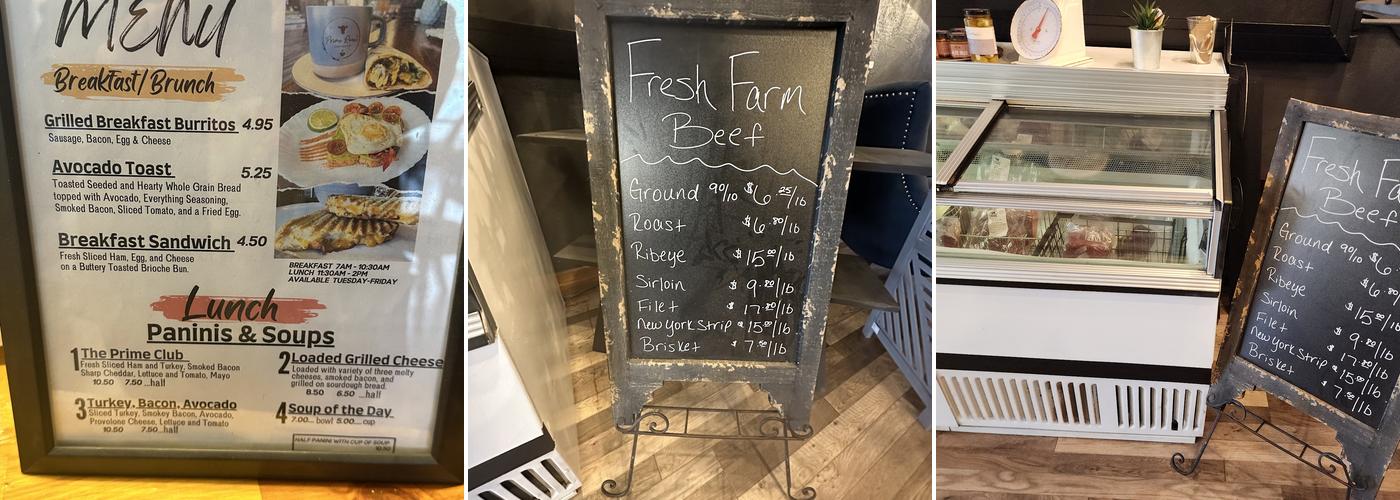 MENU
Breakfast/Brunch
Grilled Breakfast Burritos 4.95
Sausage, Bacon, Egg & Cheese
Avocado Toast 5.25
Toasted Seeded and Hearty Whole Grain Bread
topped with Avocado, Everything Seasoning,
Smoked Bacon, Sliced Tomato, and a Fried Egg.
Breakfast Sandwich 4.50
Fresh Sliced Ham, Egg, and Cheese
on a Buttery Toasted Brioche Bun.
BREAKFAST 7AM - 10:30AM
LUNCH 11:30AM - 2PM
AVAILABLE TUESDAY-FRIDAY
Lunch
Paninis & Soups
1 The Prime Club
Fresh Sliced Ham and Turkey, Smoked Bacon
Sharp Cheddar, Lettuce and Tomato, Mayo
10.50 7.50 ...half
2 Loaded Grilled Cheese
Loaded with variety of three melty
cheeses, smoked bacon, and
grilled on sourdough bread.
8.50 6.50 ...half
3 Turkey, Bacon, Avocado
Sliced Turkey, Smokey Bacon, Avocado
Provolone Cheese, Lettuce and Tomato
10.50 7.50...half
4 Soup of the Day
7.00... bowl 5.00... cup
HALF PANINI WITH CUP OF SOUP
10.50
Fresh Farm
Beef
Ground 90/10 $6.25/lb
Roast $6.80/lb
Ribeye $15.00/lb
Sirloin $9.20/lb
Filet $17.20/lb
New York Strip $15.00/lb
Brisket $7.50/lb
Fresh Fa
Beef
Ground 90/10 $6
Roast $6.80
Ribeye $15.00/lb
Sirloin $9.20/lb
Filet $17.20/lb
New York Strip $15.00/lb
Brisket $7.50/lb